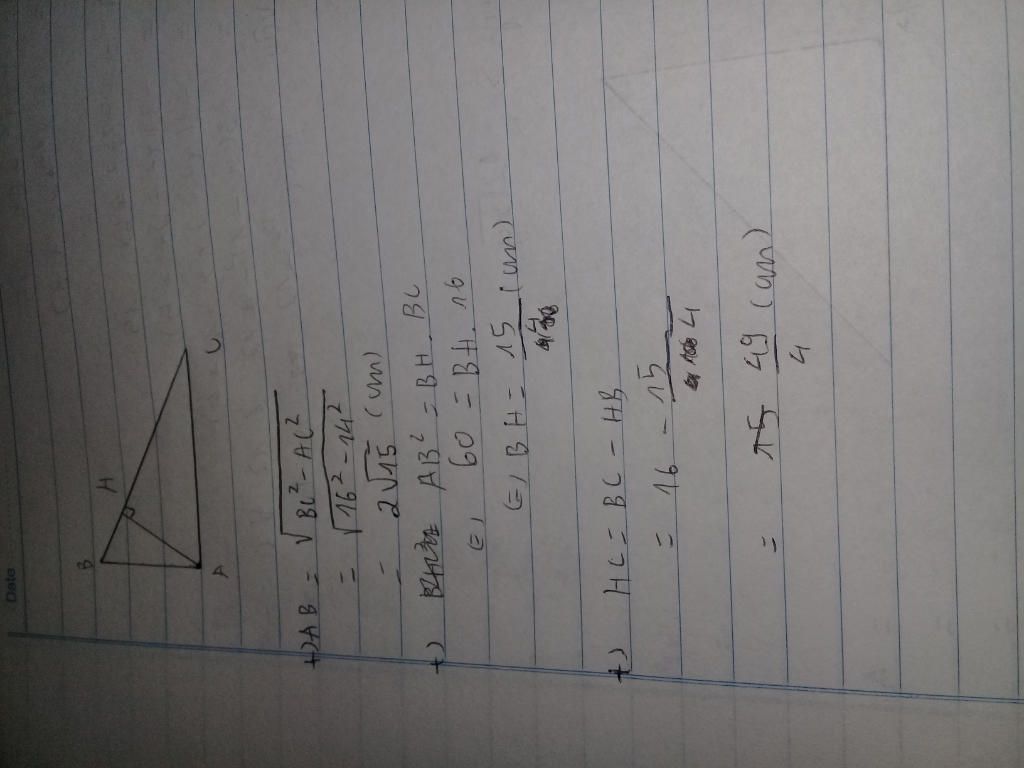 Date
B
H
A
C
+) AB = √(BC² - AC²)
= √(16² - 14²)
= 2√15 (cm)
+) AB² = BH . BC
(=) 60 = BH . 16
(=) BH = 15/4 (cm)
+) HC = BC - HB
= 16 - 15/4
= 49/4 (cm)